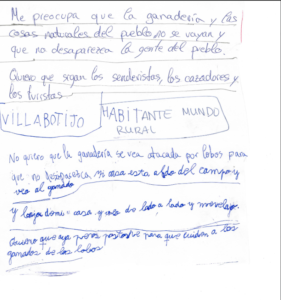 Me preocupa que la ganadería y las
cosas naturales del pueblo no se vayan y
que no desaparezca la gente del pueblo.
Quiero que sigan los senderistas, los cazadores y
los turistas
VILLABOTIJO
HABITANTE MUNDO
RURAL
No quiero que la ganadería se vea atacada por lobos para
que no desaparezca, mi casa esta al lado del campo y
veo el ganado
y casa de lado a lado y
Quiero que aya perros pastores para que cuidan a los
ganados de los lobos